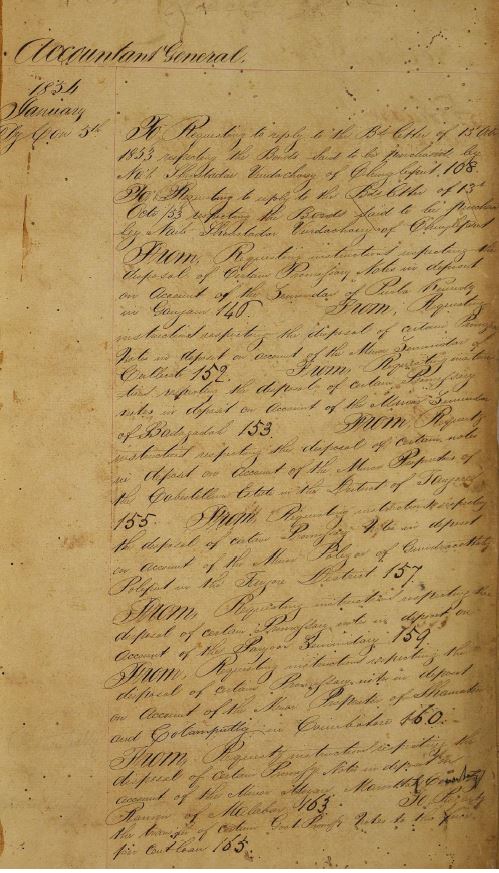 Accountant General.
1854
January
5th
To, Requesting to reply to the Bds letter of 13 Octo
1853 respecting the Bonds said to be purchased by
Naib Sheristadar Vurdachary of Chingleput, 108.
To, Requesting to reply to the Bds letter of 13th
Octo /53 respecting the Bonds said to be purchased
by Naib Sheristadar Vurdachary of Chingleput
From, Requesting instructions respecting the
disposal of certain Promissory Notes in deposit
on Account of the Zemindar of
in Ganjam 140. From, Requesting
instructions respecting the disposal of certain Promissy
Notes in deposit on account of the Minor Zemindar of
152. From, Requesting instruc
tions respecting the disposal of certain Promissory
notes in deposit on Account of the Minor Zemindar
of 153. From, Requestg
instructions respecting the disposal of certain notes
in deposit on Account of the Minor Proprietor of
the Estate in the District of Tanjore
155. From, Requesting instructions respecting
the disposal of certain Promissory Notes in deposit
on account of the Minor Poligar of
Pollput in the District 157.
From, Requesting instructions respecting the
disposal of certain Promissory notes in deposit on
Account of the Zemindary 159
From, Requesting instructions respecting the
disposal of certain Promissory notes in deposit
on Account of the Minor Proprietor of
and in Coimbatore 160.
From, Requestg instructions respecting the
disposal of certain Promissy Notes in deposit on
account of the Minor
of Malabar 163. To,
the transfer of certain Govt Promy Notes to the
per cent loan 165.